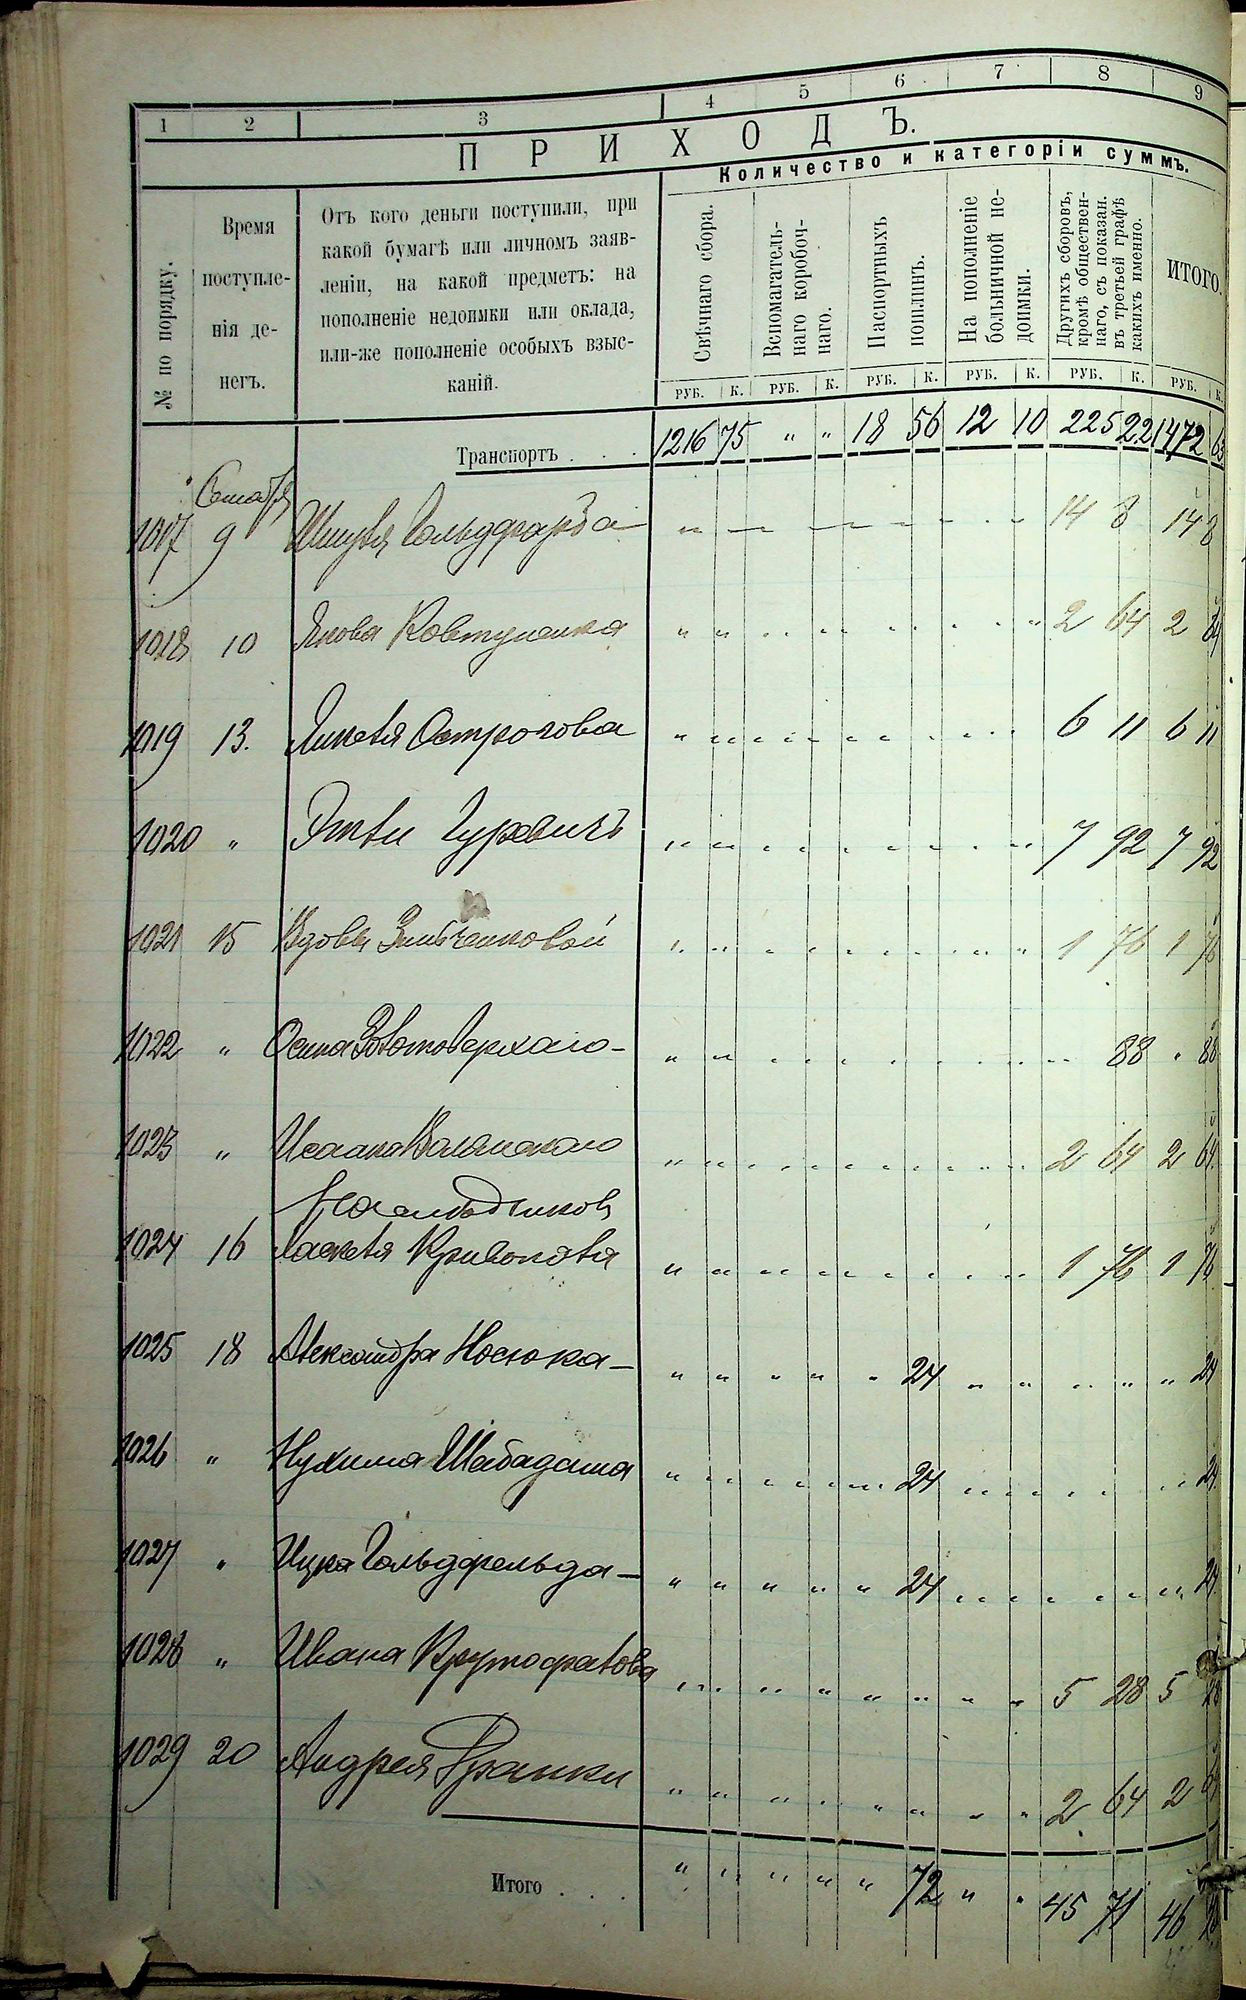 1 2 3 4 5 6 7 8 9
ПРИХОДЪ.
Количество и категоріи суммъ.
№ по порядку.
Время
поступле-
нія де-
негъ.
Отъ кого деньги поступили, при
какой бумагѣ или личномъ заяв-
леніи, на какой предметъ: на
пополненіе недоимки или оклада,
или-же пополненіе особыхъ взыс-
каній.
Свѣчнаго сбора.
Вспомагатель-
наго коробоч-
наго.
Паспортныхъ
пошлинъ.
На пополненіе
больничной не-
доимки.
Другихъ сборовъ,
кромѣ обществен-
наго, съ показан.
въ третьей графѣ
какихъ именно.
ИТОГО.
РУБ. К. РУБ. К. РУБ. К. РУБ. К. РУБ. К. РУБ. К.
Транспортъ . . . 1216 75 " " 18 56 12 10 225 22 1472 63
Сентября
1017 9 Гольдфарба 14 8 14 8
1018 10 Якова Ковтуненка " " 2 64 2 64
1019 13. Острогова " " 6 11 6 11
1020 " Гуревичъ " " 7 92 7 92
1021 15 Вдовы " " 1 76 1 76
1022 " Осипа Золотоверхаго " " 88 " 88
1023 " Исаака Волынскаго " " 2 64 2 64
Наслѣдниковъ
1024 16 " " 1 76 1 76
1025 18 Александра Носюка " " " " " 24 " " " " " 24
1026 " Нухима Шабадаша " 24 24
1027 " Ицка Гольдфельда " " " " " 24 24
1028 " Ивана " " " " " " 5 28 5 28
1029 20 Андрея Франки " " " " " 2 64 2 64
Итого . . . " " " " " 72 " " 45 71 46